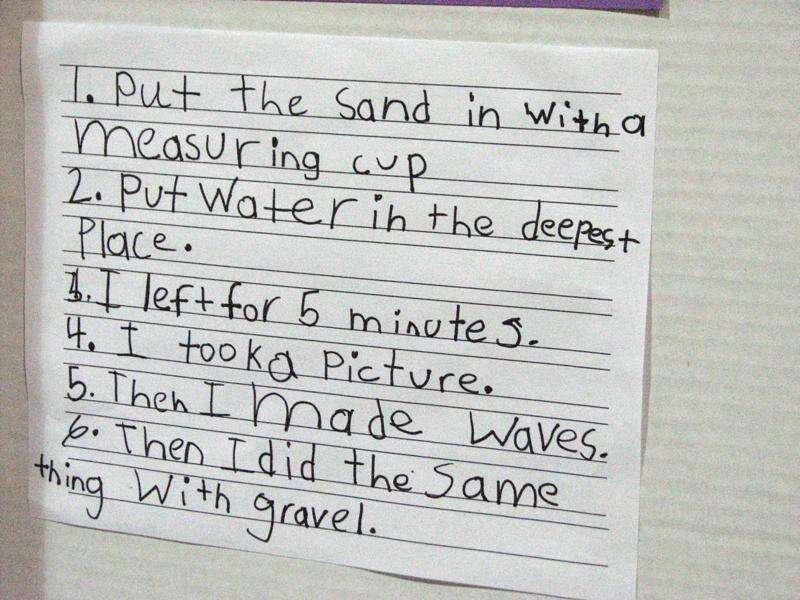 1. Put the Sand in with a
measuring cup
2. Put Water in the deepest
Place.
3. I left for 5 minutes.
4. I took a Picture.
5. Then I made Waves.
6. Then I did the Same
thing With gravel.